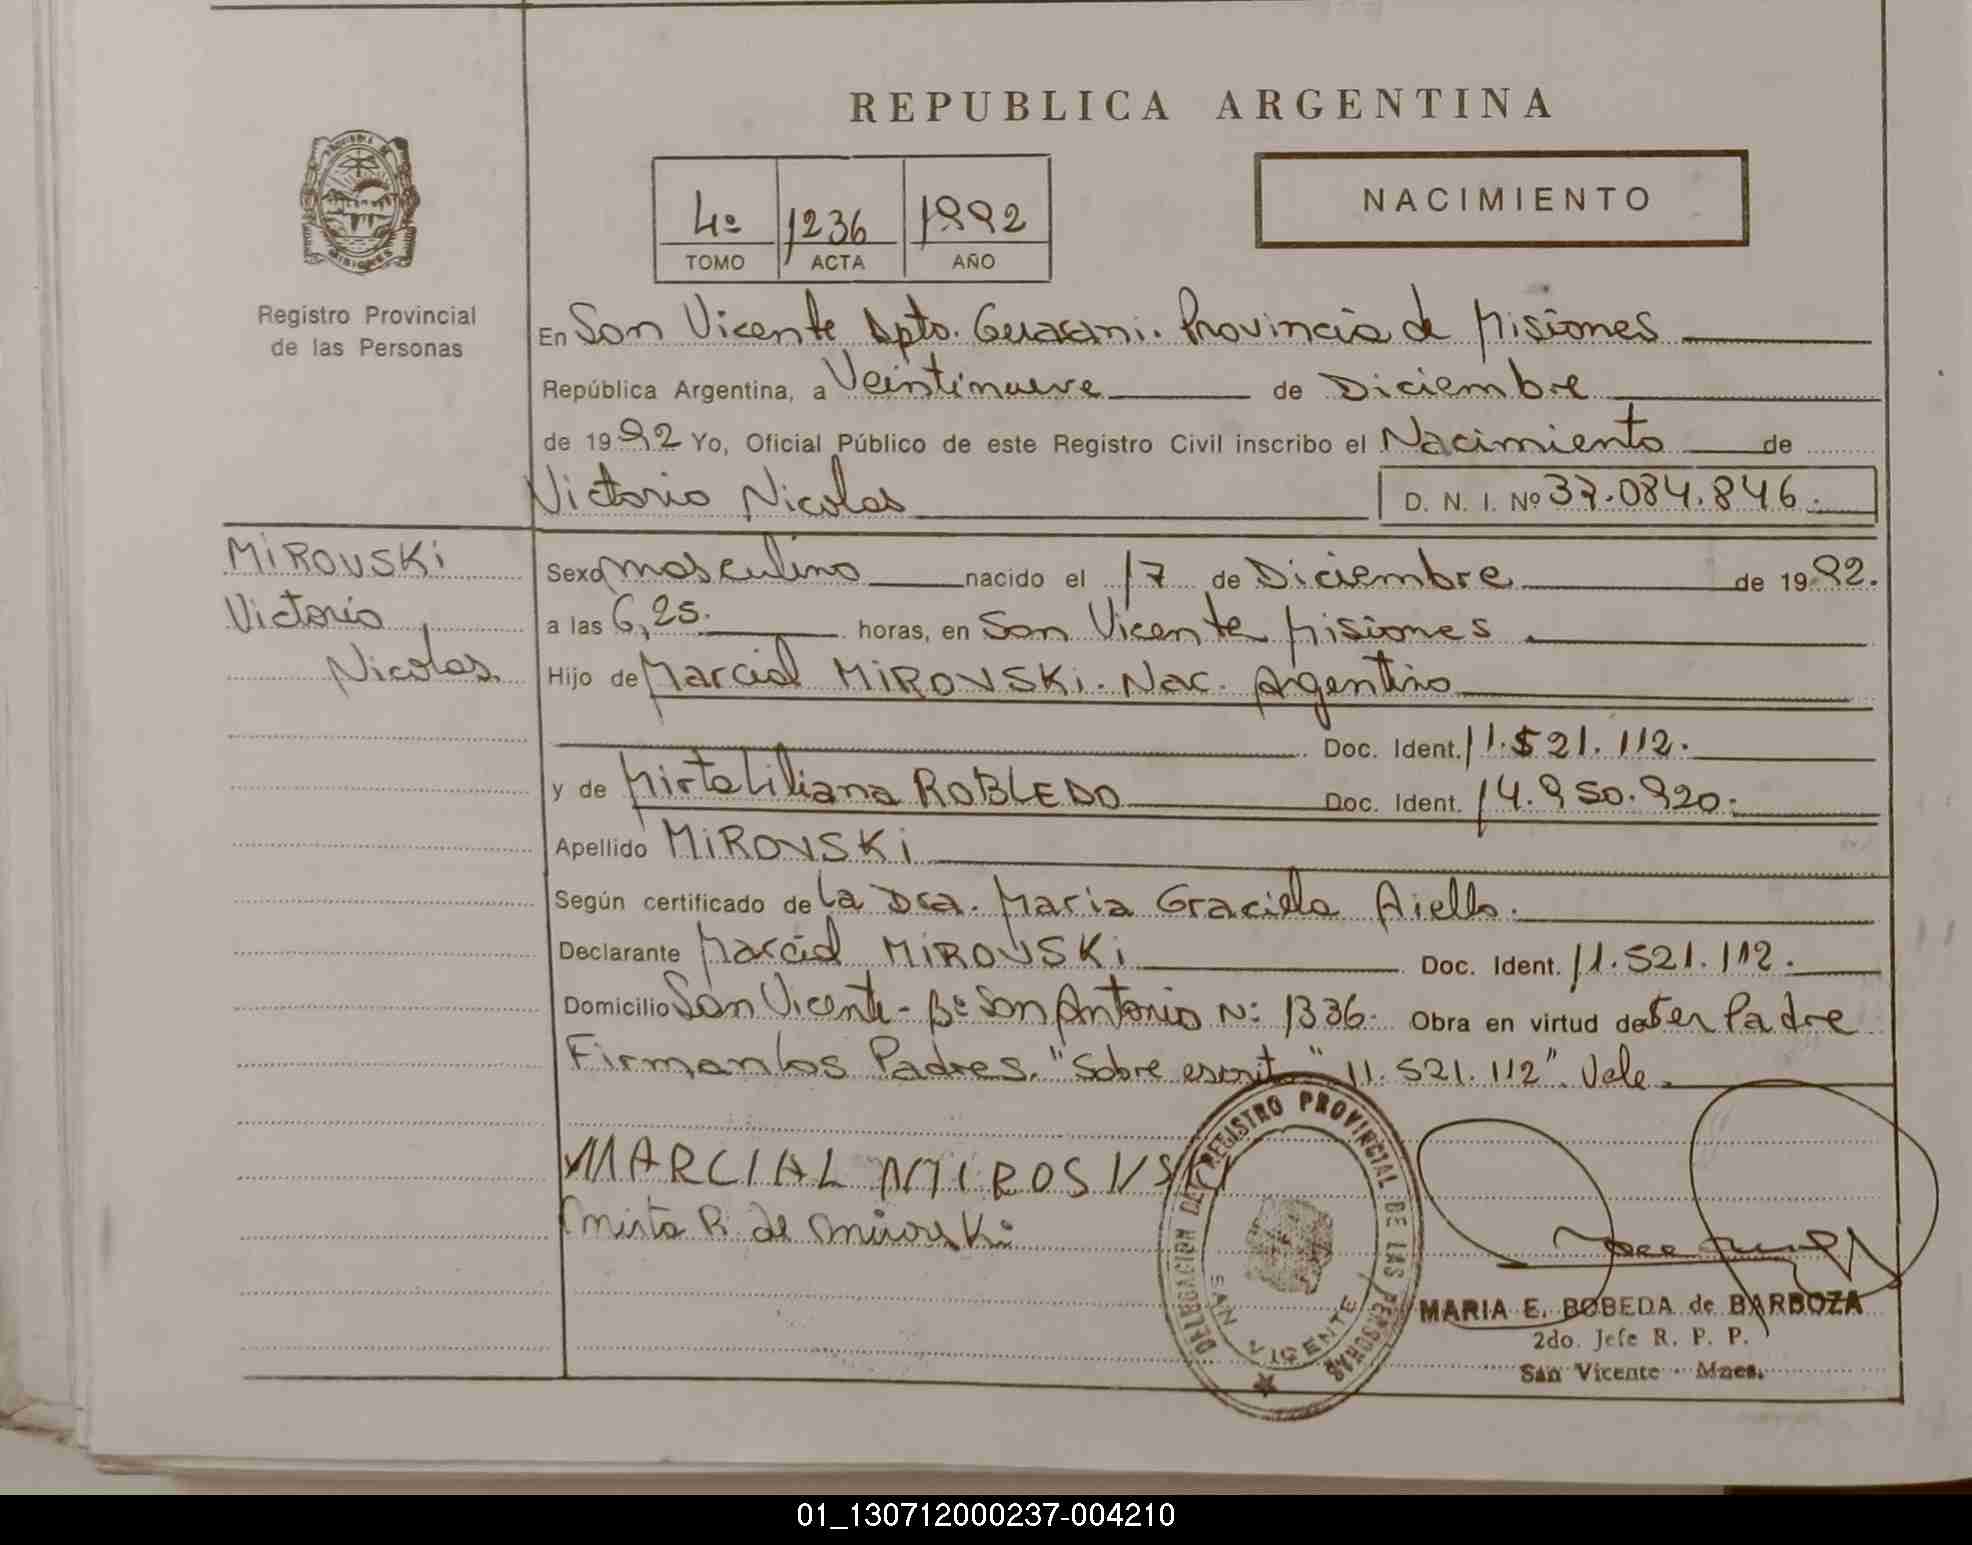 REPUBLICA ARGENTINA
NACIMIENTO
4º 1236 1992
TOMO ACTA AÑO
MISIONES
Registro Provincial
de las Personas
En San Vicente Dpto. Guarani. Provincia de Misiones
República Argentina, a Veintinueve de Diciembre
de 1992 Yo, Oficial Público de este Registro Civil inscribo el Nacimiento de
Victorio Nicolas D. N. I. Nº 37.084.846.
MIROVSKi
Victorio
Nicolas.
Sexo masculino nacido el 17 de Diciembre de 1992.
a las 6,25. horas, en San Vicente Misiones
Hijo de Marcial MIROVSKi. Nac. Argentino
Doc. Ident. 11.521.112.
y de Mirta Liliana ROBLEDO Doc. Ident. 14.950.920.
Apellido MIROVSKi
Según certificado de La Dra. Maria Graciela Aiello.
Declarante Marcial MIROVSKi Doc. Ident. 11.521.112.
Domicilio San Vicente - Bº San Antonio Nº 1336. Obra en virtud de Ser Padre
Firman los Padres. "Sobre escrito" "11.521.112". Vale.
MARCIAL MIROSVSKI
Mirta R. de Mirovski
DELEGACION DEL REGISTRO PROVINCIAL DE LAS PERSONAS
SAN VICENTE
MARIA E. BOBEDA de BARBOZA
2do. Jefe R. P. P.
San Vicente - Mnes.
01_130712000237-004210